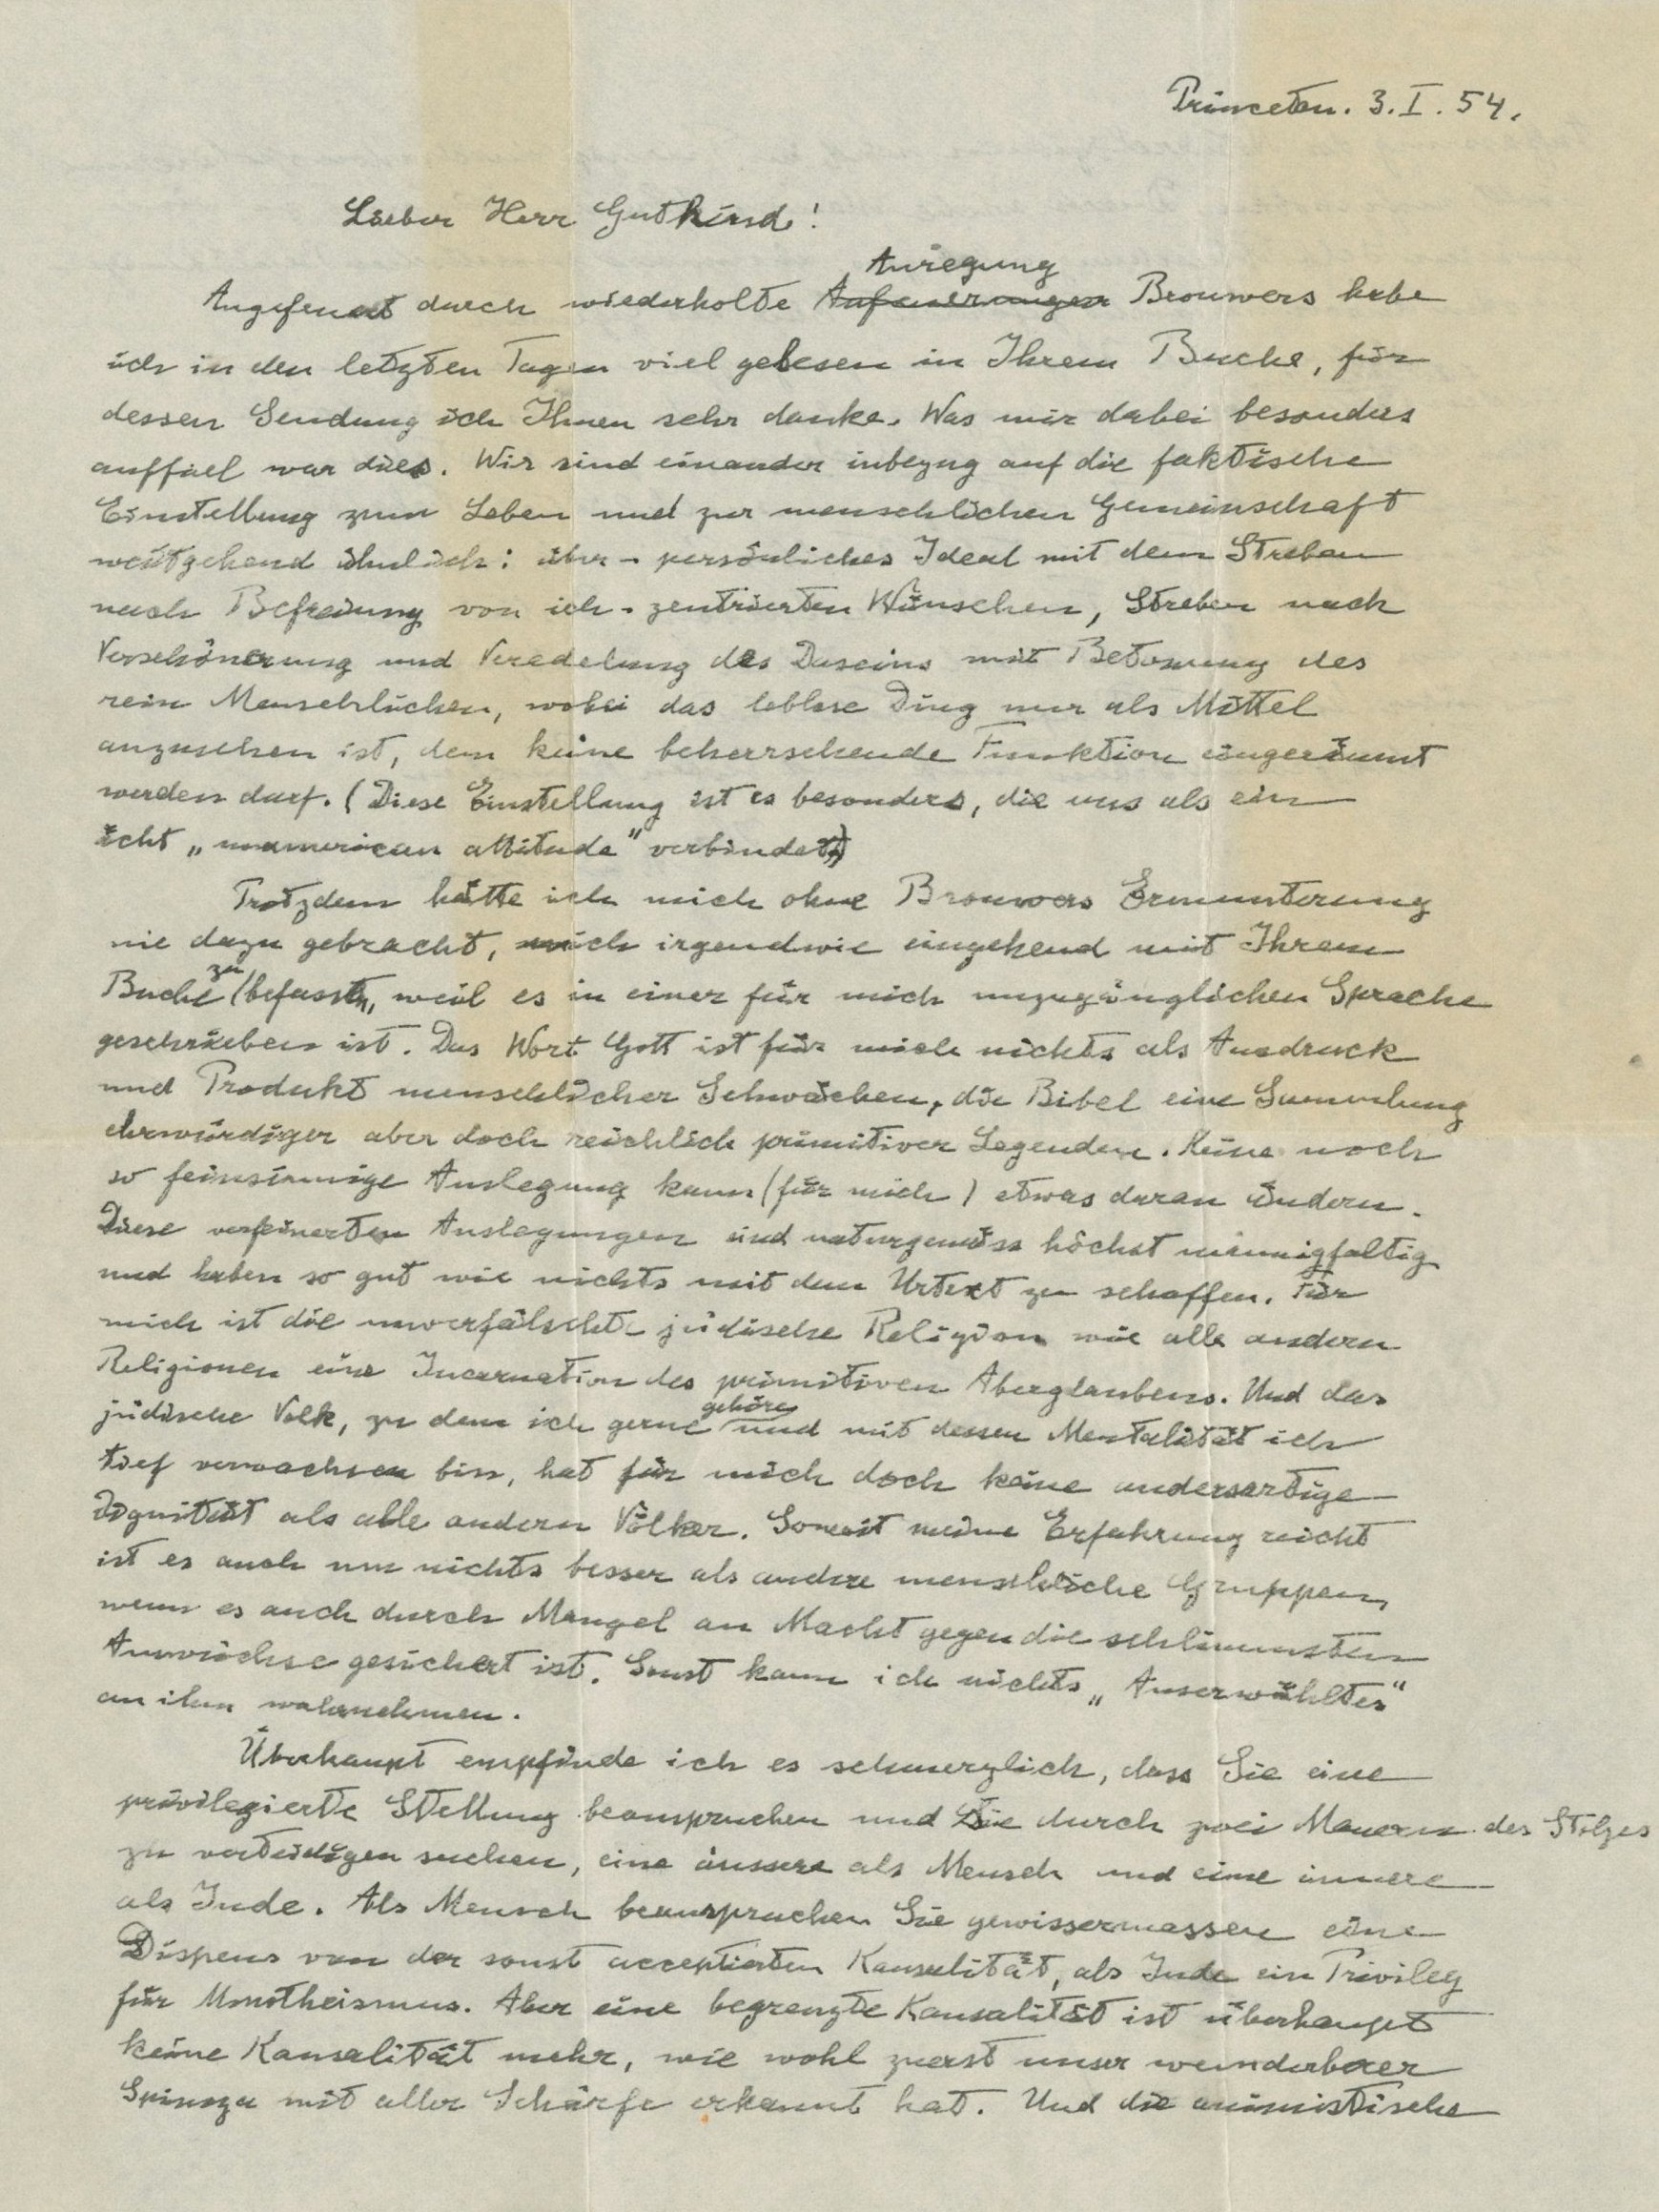 Princeton. 3. I. 54.
Lieber Herr Gutkind!
Anregung
Angefeuert durch wiederholte Anfeuerungen Brouwers habe
ich in den letzten Tagen viel gelesen in Ihrem Buche, für
dessen Sendung ich Ihnen sehr danke. Was mir dabei besonders
auffiel war dies. Wir sind einander inbezug auf die faktische
Einstellung zum Leben und zur menschlichen Gemeinschaft
weitgehend ähnlich: über-persönliches Ideal mit dem Streben
nach Befreiung von ich-zentrierten Wünschen, Streben nach
Verschönerung und Veredelung des Daseins mit Betonung des
rein Menschlichen, wobei das leblose Ding nur als Mittel
anzusehen ist, dem keine beherrschende Funktion eingeräumt
werden darf. (Diese Einstellung ist es besonders, die uns als ein
echt „unamerican attitude" verbindet.)
Trotzdem hätte ich mich ohne Brouwers Ermunterung
nie dazu gebracht, mich irgendwie eingehend mit Ihrem
Buche zu befassen, weil es in einer für mich unzugänglichen Sprache
geschrieben ist. Das Wort Gott ist für mich nichts als Ausdruck
und Produkt menschlicher Schwächen, die Bibel eine Sammlung
ehrwürdiger aber doch reichlich primitiver Legenden. Keine noch
so feinsinnige Auslegung kann (für mich) etwas daran ändern.
Diese verfeinerten Auslegungen sind naturgemäss höchst mannigfaltig
und haben so gut wie nichts mit dem Urtext zu schaffen. Für
mich ist die unverfälschte jüdische Religion wie alle andern
Religionen eine Incarnation des primitiven Aberglaubens. Und das
jüdische Volk, zu dem ich gerne gehöre und mit dessen Mentalität ich
tief verwachsen bin, hat für mich doch keine andersartige
Dignität als alle andern Völker. Soweit meine Erfahrung reicht
ist es auch um nichts besser als andere menschliche Gruppen,
wenn es auch durch Mangel an Macht gegen die schlimmsten
Auswüchse gesichert ist. Sonst kann ich nichts „Auserwähltes"
an ihm wahrnehmen.
Überhaupt empfinde ich es schmerzlich, dass Sie eine
privilegierte Stellung beanspruchen und sie durch zwei Mauern des Stolzes
zu verteidigen suchen, eine äussere als Mensch und eine innere
als Jude. Als Mensch beanspruchen Sie gewissermassen einen
Dispens von der sonst acceptierten Kausalität, als Jude ein Privileg
für Monotheismus. Aber eine begrenzte Kausalität ist überhaupt
keine Kausalität mehr, wie wohl zuerst unser wunderbarer
Spinoza mit aller Schärfe erkannt hat. Und die animistische